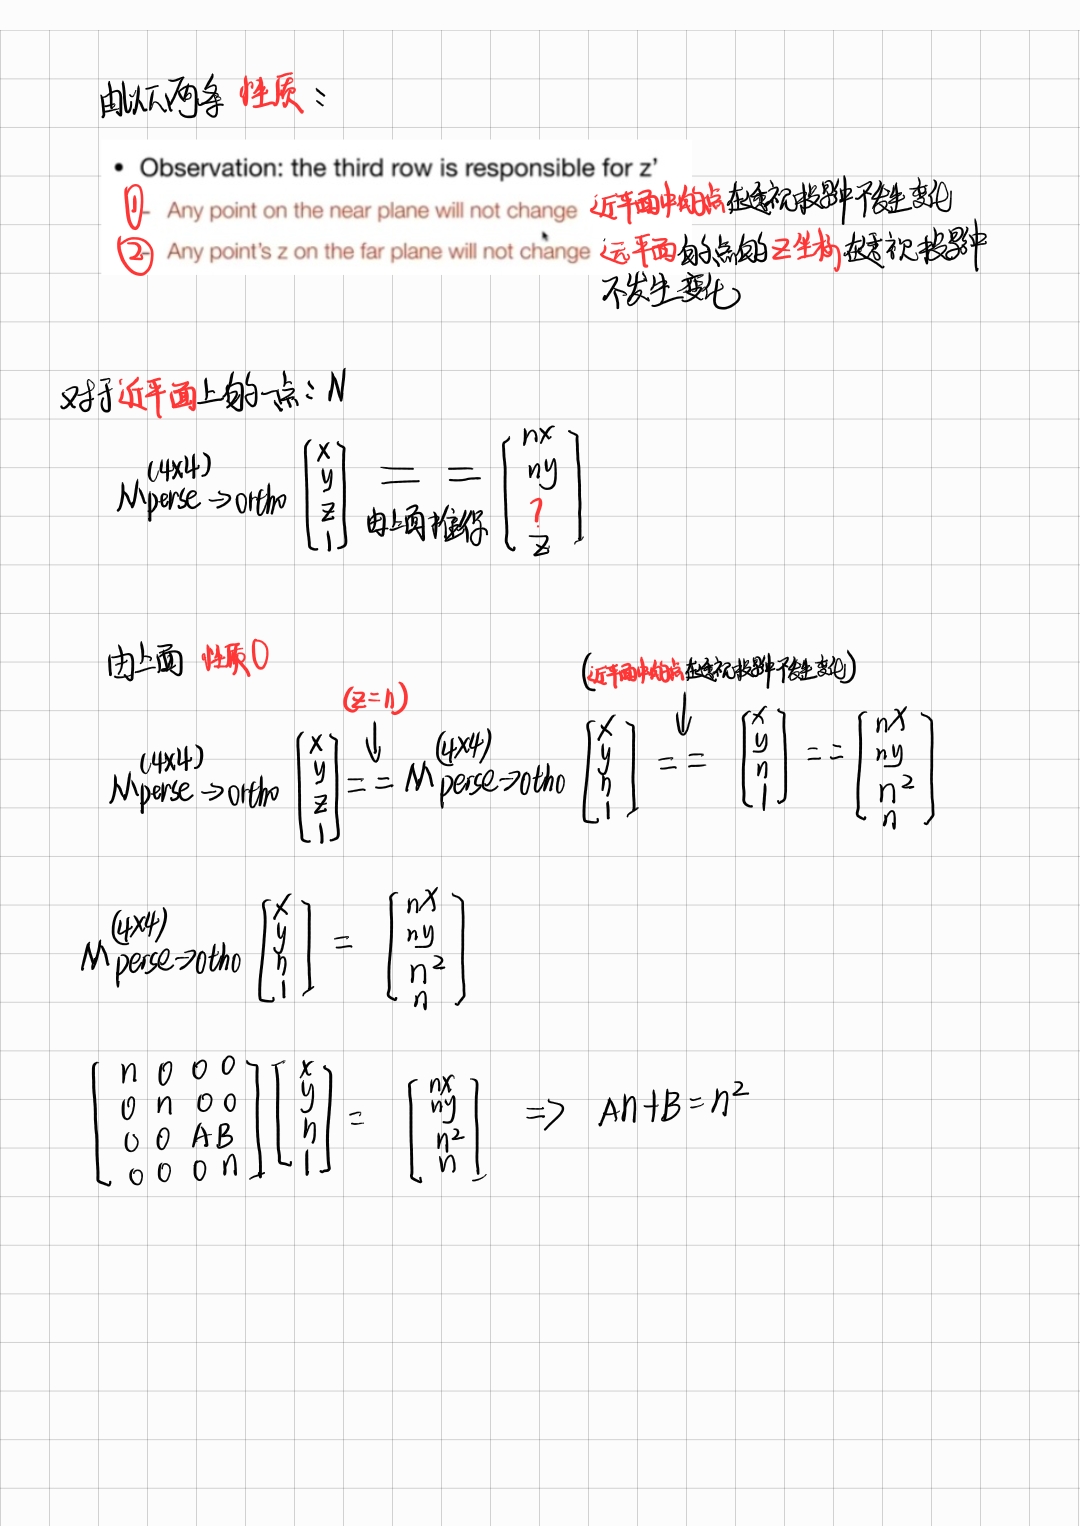 由以下两条 性质：
• Observation: the third row is responsible for z’
① - Any point on the near plane will not change 近平面中的点在透视投影中不发生变化
② - Any point's z on the far plane will not change 远平面的点的Z坐标在透视投影中
不发生变化
对于近平面上的一点：N
M perse→ortho (4x4) [x y z 1] == [nx ny ? z]
由上面推得
由上面 性质①
(近平面中的点在透视投影中不发生变化)
(z=n)
M perse→ortho (4x4) [x y z 1] == M perse→otho (4x4) [x y n 1] == [x y n 1] == [nx ny n² n]
M perse→otho (4x4) [x y n 1] = [nx ny n² n]
[n 0 0 0
0 n 0 0
0 0 A B
0 0 0 n] [x y n 1] = [nx ny n² n] => An+B=n²